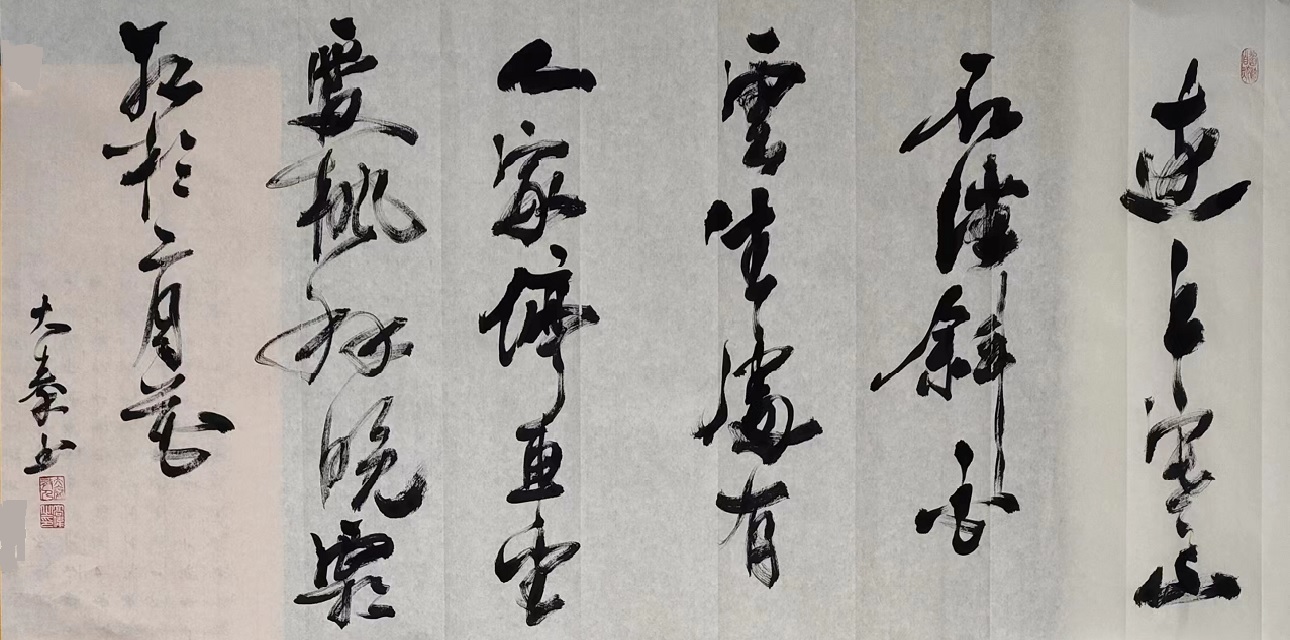 遠上寒山
石徑斜白
雲生處有
人家停車坐
愛楓林晚霜
紅於二月花
大秦书